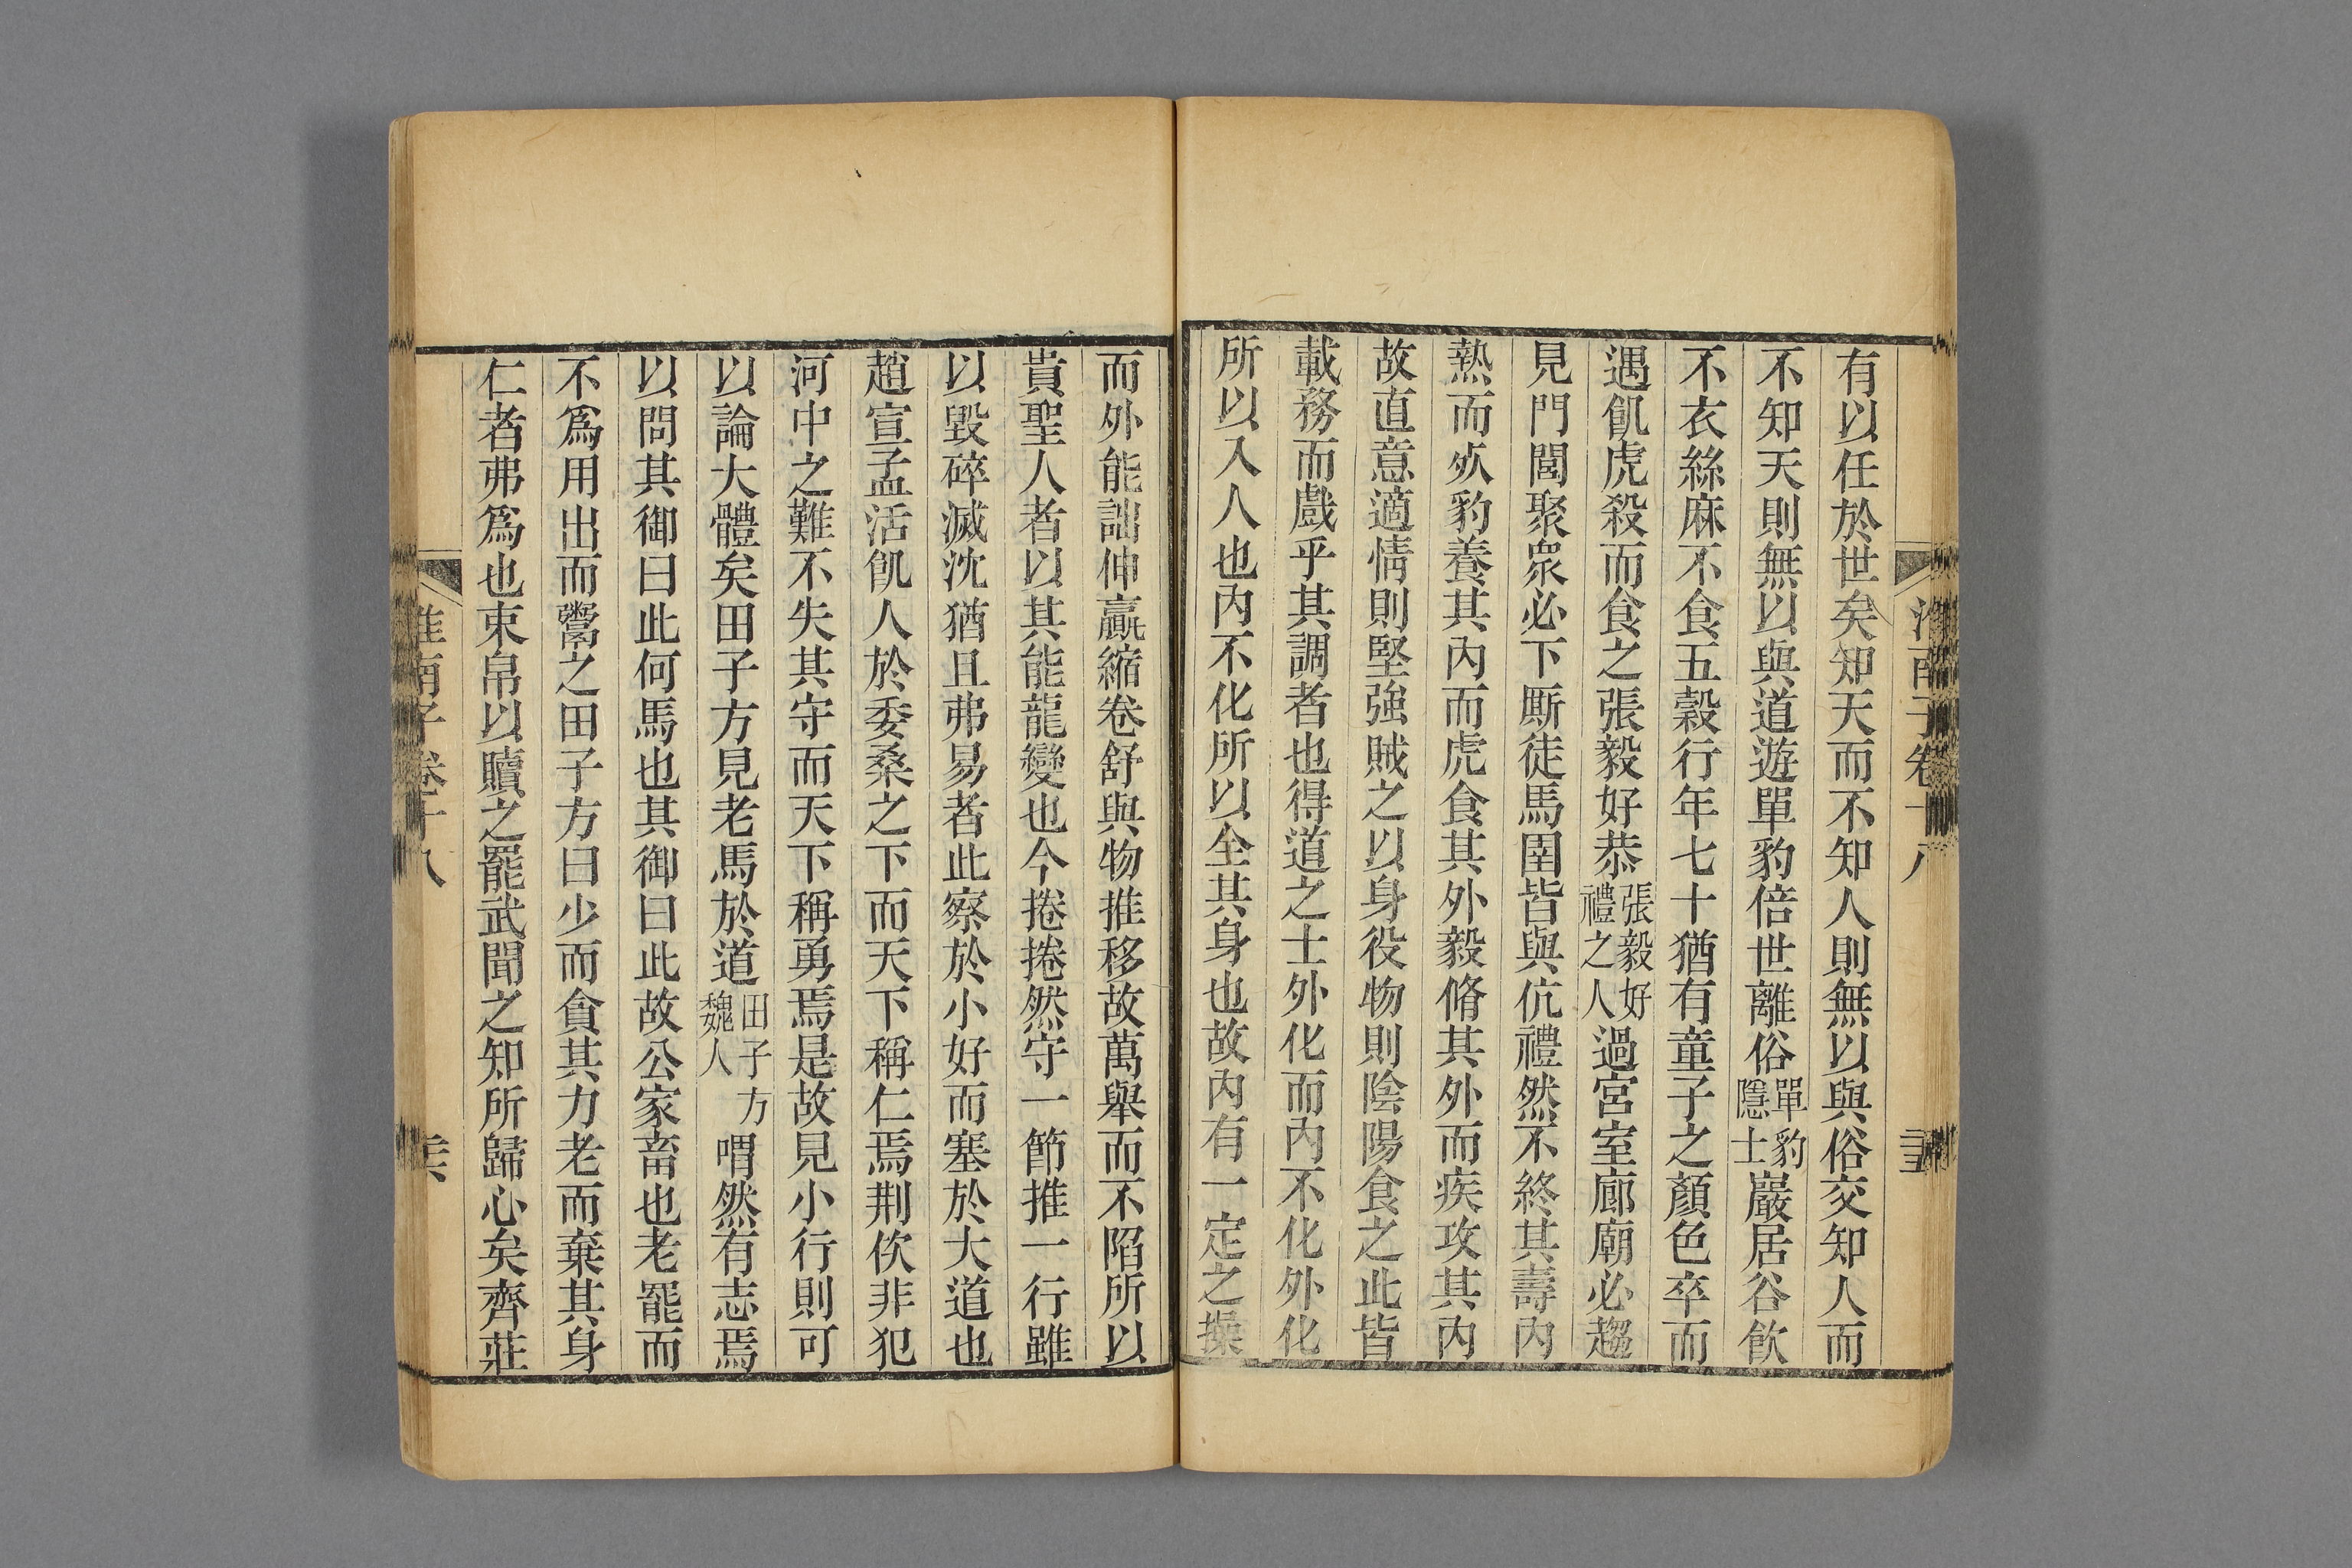 淮南子卷十八
有以任於世矣知天而不知人則無以與俗交知人而
不知天則無以與道遊單豹倍世離俗單豹隱士巖居谷飲
不衣絲麻不食五穀行年七十猶有童子之顏色卒而
遇飢虎殺而食之張毅好恭張毅好禮之人過宮室廊廟必趨
見門閭聚衆必下厮徒馬圉皆與伉禮然不終其壽內
熱而死豹養其內而虎食其外毅脩其外而疾攻其內
故直意適情則堅強賊之以身役物則陰陽食之此皆
載務而戲乎其調者也得道之士外化而內不化外化
所以入人也內不化所以全其身也故內有一定之操
而外能詘伸贏縮卷舒與物推移故萬舉而不陷所以
貴聖人者以其能龍變也今捲捲然守一節推一行雖
以毀碎滅沈猶且弗易者此察於小好而塞於大道也
趙宣孟活飢人於委桑之下而天下稱仁焉荆佽非犯
河中之難不失其守而天下稱勇焉是故見小行則可
以論大體矣田子方見老馬於道田子方魏人喟然有志焉
以問其御曰此何馬也其御曰此故公家畜也老罷而
不爲用出而鬻之田子方曰少而貪其力老而棄其身
仁者弗爲也束帛以贖之罷武聞之知所歸心矣齊莊
淮南子卷十八